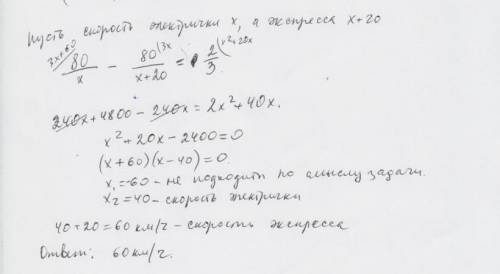 Пусть скорость электрички x, а экспресса x+20
3x+60 80/x - 80/x+20 (3x = 2/3 (x²+20x
240x+4800-240x=2x²+40x.
x²+20x-2400=0
(x+60)(x-40)=0.
x₁=-60 - не подходит по смыслу задачи.
x₂=40 - скорость электрички
40+20=60 км/ч - скорость экспресса
Ответ: 60 км/ч.